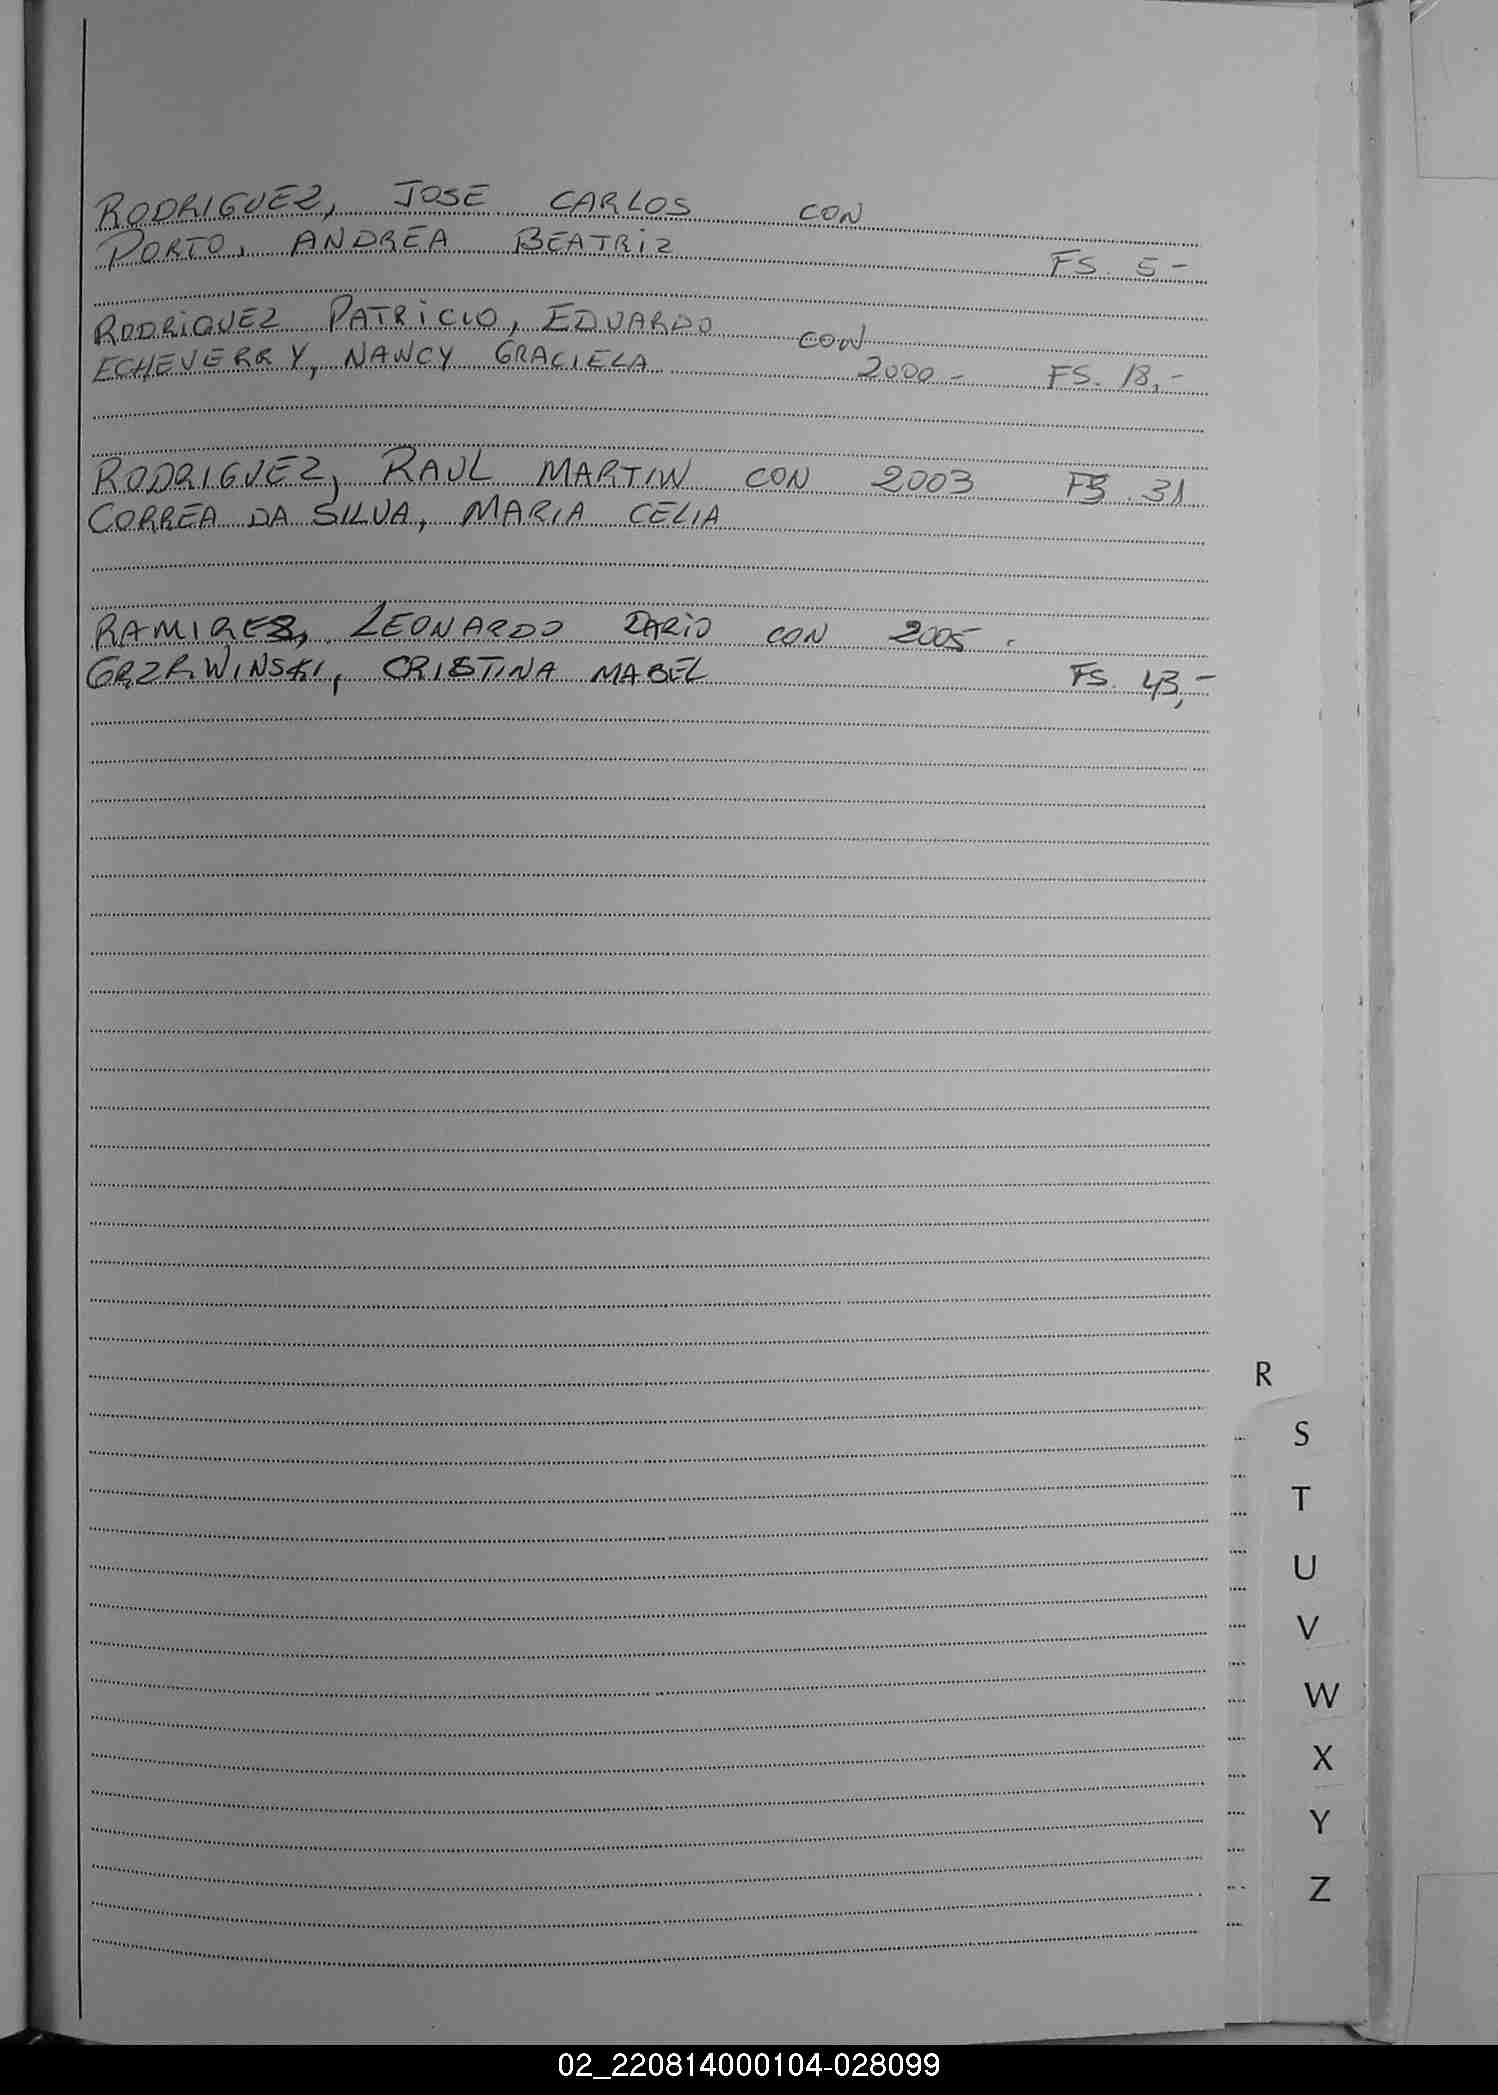 RODRIGUEZ, JOSE CARLOS CON
PORTO, ANDREA BEATRIZ FS. 5-
RODRIGUEZ PATRICIO, EDUARDO CON
ECHEVERRY, NANCY GRACIELA 2000- FS. 18,-
RODRIGUEZ, RAUL MARTIN CON 2003 FS. 31
CORREA DA SILVA, MARIA CELIA
RAMIREZ, LEONARDO DARIO CON 2005.
CRISTINA MABEL FS. 43,-
R
S
T
U
V
W
X
Y
Z
02_220814000104-028099